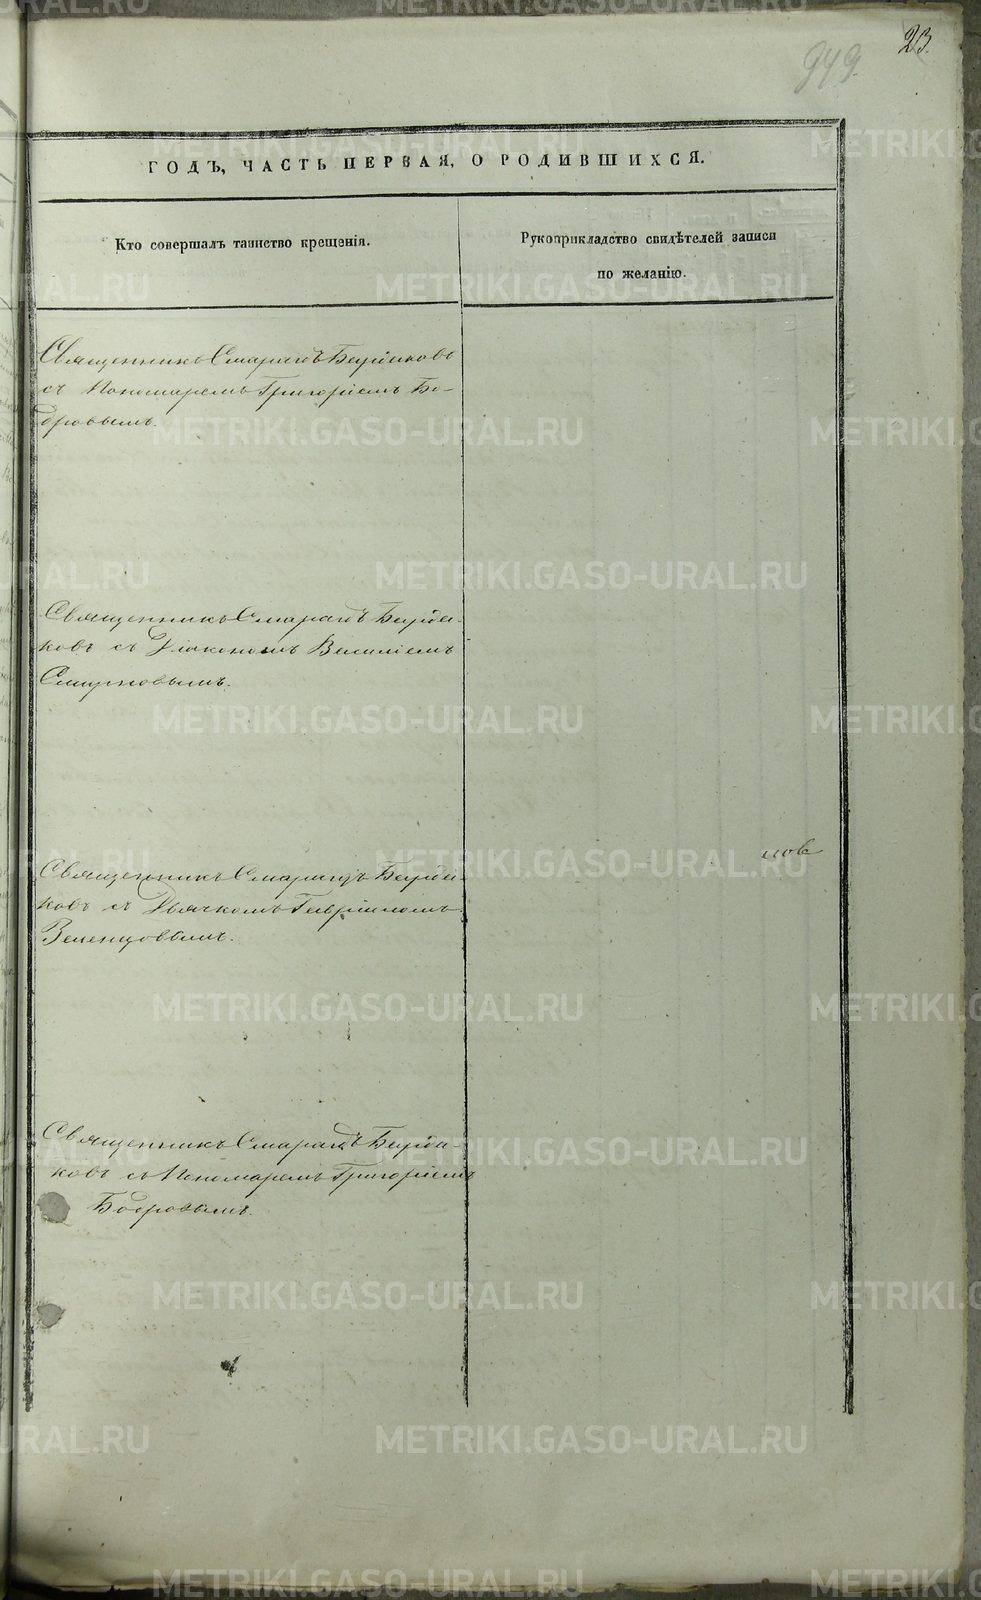 23.
949.
ГОДЪ, ЧАСТЬ ПЕРВАЯ, О РОДИВШИХСЯ.
Кто совершалъ таинство крещенія.
Рукоприкладство свидѣтелей записи
по желанію.
Священникъ Смарагдъ
съ Пономаремъ Григоріемъ Бо-
бровымъ.
Священникъ Смарагдъ Бирюко-
ковъ съ Діакономъ Василіемъ
Смирновымъ.
Священникъ Смарагдъ
ковъ съ Дьячкомъ Гавріиломъ
Зеленцовымъ.
Священникъ Смарагдъ
ковъ съ Пономаремъ Григоріемъ
Бобровымъ.
METRIKI.GASO-URAL.RU